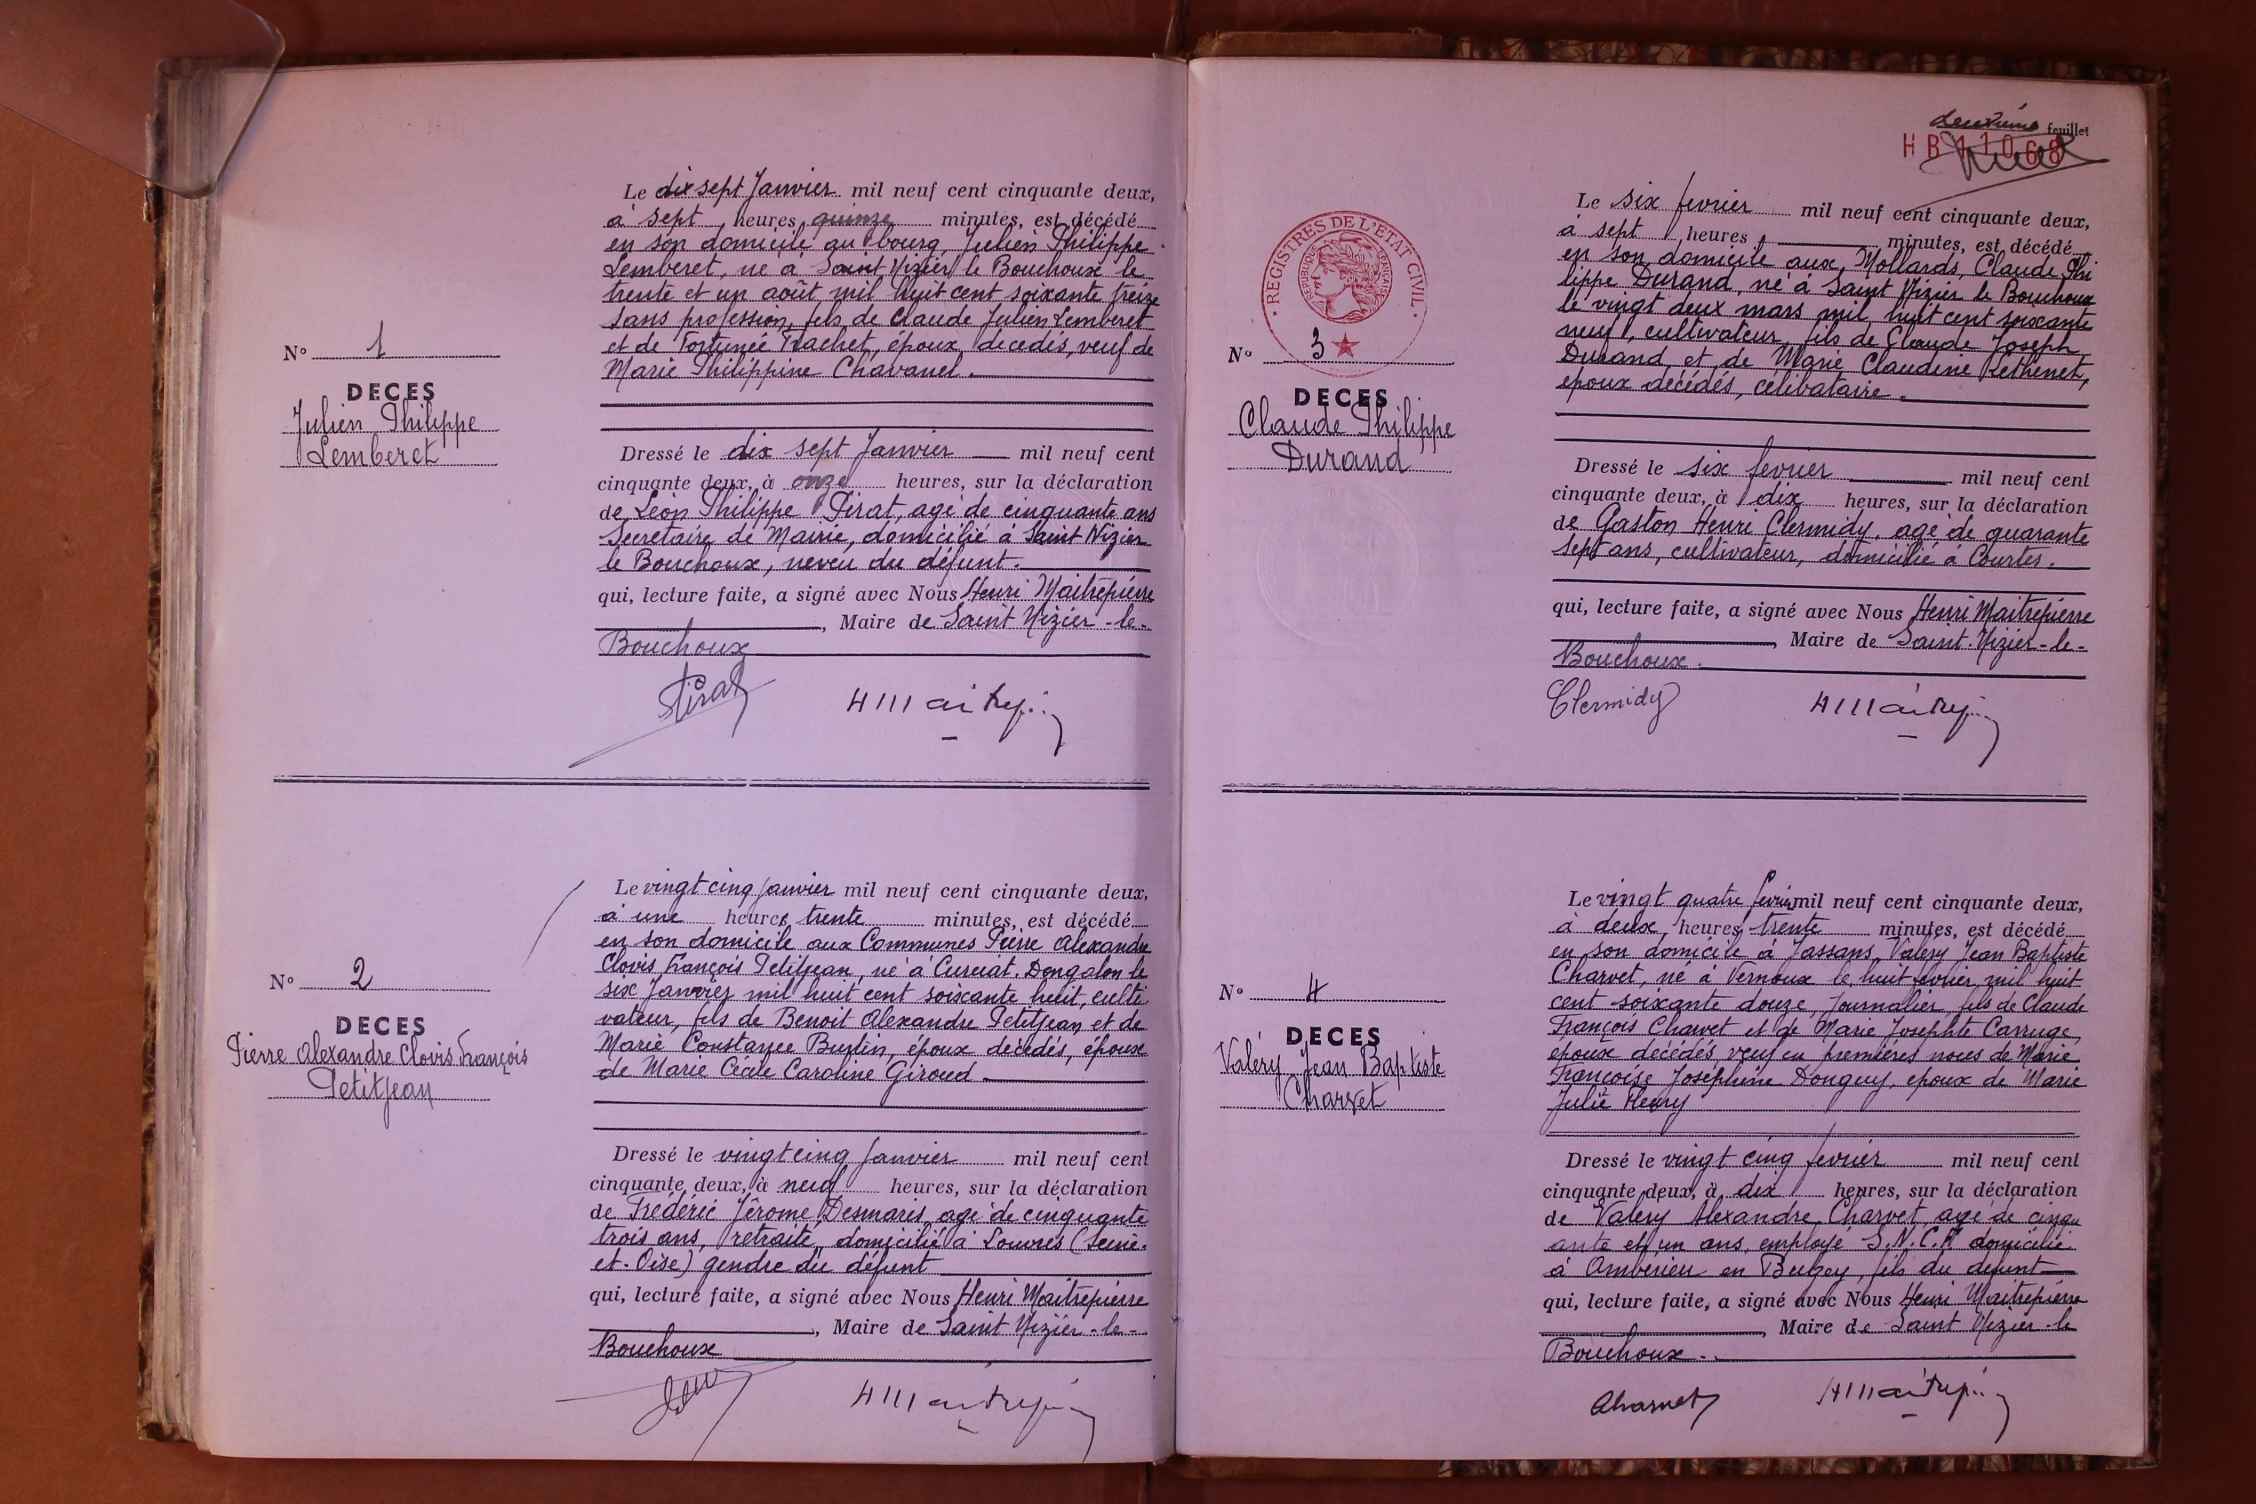 Le dix sept Janvier mil neuf cent cinquante deux,
à sept heures quinze minutes, est décédé
en son domicile au bourg, Julien Philippe
Lemberet, né à Saint Nizier le Bouchoux le
trente et un août mil huit cent soixante treize
sans profession, fils de Claude Julien Lemberet
et de Fortunée Trachet, époux décédés, veuf de
Marie Philippine Chavanel.
N° 1
DECES
Julien Philippe
Lemberet
Dressé le dix sept Janvier mil neuf cent
cinquante deux, à onze heures, sur la déclaration
de Léon Philippe Pirat, agé de cinquante ans
Secrétaire de Mairie, domicilié à Saint Nizier
le Bouchoux, neveu du défunt.
qui, lecture faite, a signé avec Nous Henri Maitrepierre
, Maire de Saint Nizier-le-
Bouchoux
Pirat
HMaitrepi
Le vingt cinq Janvier mil neuf cent cinquante deux,
à une heures trente minutes, est décédé
en son domicile aux Communes Pierre Alexandre
Clovis François Petitjean, né à Curciat-Dongalon le
six Janvier mil huit cent soixante huit, culti
vateur, fils de Benoit Alexandre Petitjean et de
Marie Constance Burtin, époux décédés, époux
de Marie Cécile Caroline Giroud
N° 2
DECES
Pierre Alexandre Clovis François
Petitjean
Dressé le vingt cinq Janvier mil neuf cent
cinquante deux, à neuf heures, sur la déclaration
de Frédéric Jérome Desmaris, agé de cinquante
trois ans, retraité, domicilié à Louvres (Seine-
et-Oise) gendre du défunt
qui, lecture faite, a signé avec Nous Henri Maitrepierre
, Maire de Saint Nizier-le-
Bouchoux
HMaitrepi
deuxième feuillet
HB 11068
Le six fevrier mil neuf cent cinquante deux,
à sept heures minutes, est décédé
en son domicile aux Mollards, Claude Phi
lippe Durand, né à Saint Nizier le Bouchoux
le vingt deux mars mil huit cent soixante
neuf, cultivateur, fils de Claude Joseph
Durand et de Marie Claudine Rethenet,
époux décédés, célibataire.
REGISTRES DE L'ETAT CIVIL
REPUBLIQUE FRANCAISE
N° 3
DECES
Claude Philippe
Durand
Dressé le six fevrier mil neuf cent
cinquante deux, à dix heures, sur la déclaration
de Gaston Henri Clermidy, agé de quarante
sept ans, cultivateur, domicilié à Courtes.
qui, lecture faite, a signé avec Nous Henri Maitrepierre
, Maire de Saint-Nizier-le-
Bouchoux.
Clermidy
HMaitrepi
Le vingt quatre fevrier mil neuf cent cinquante deux,
à deux heures trente minutes, est décédé
en son domicile à Jassans, Valéry Jean Baptiste
Charvet, né à Vernoux le huit fevrier mil huit
cent soixante douze, Journalier, fils de Claude
François Charvet et de Marie Josephte Carruge,
époux décédés, veuf en premières noces de Marie
Françoise Joséphine Donguy, époux de Marie
Julie Henry
N° 4
DECES
Valéry Jean Baptiste
Charvet
Dressé le vingt cinq fevrier mil neuf cent
cinquante deux, à dix heures, sur la déclaration
de Valéry Alexandre Charvet, agé de cinqu
ante et un ans, employé S.N.C.F. domicilié
à Ambérieu en Bugey, fils du défunt
qui, lecture faite, a signé avec Nous Henri Maitrepierre
, Maire de Saint Nizier-le
Bouchoux.
Charvet
HMaitrepi